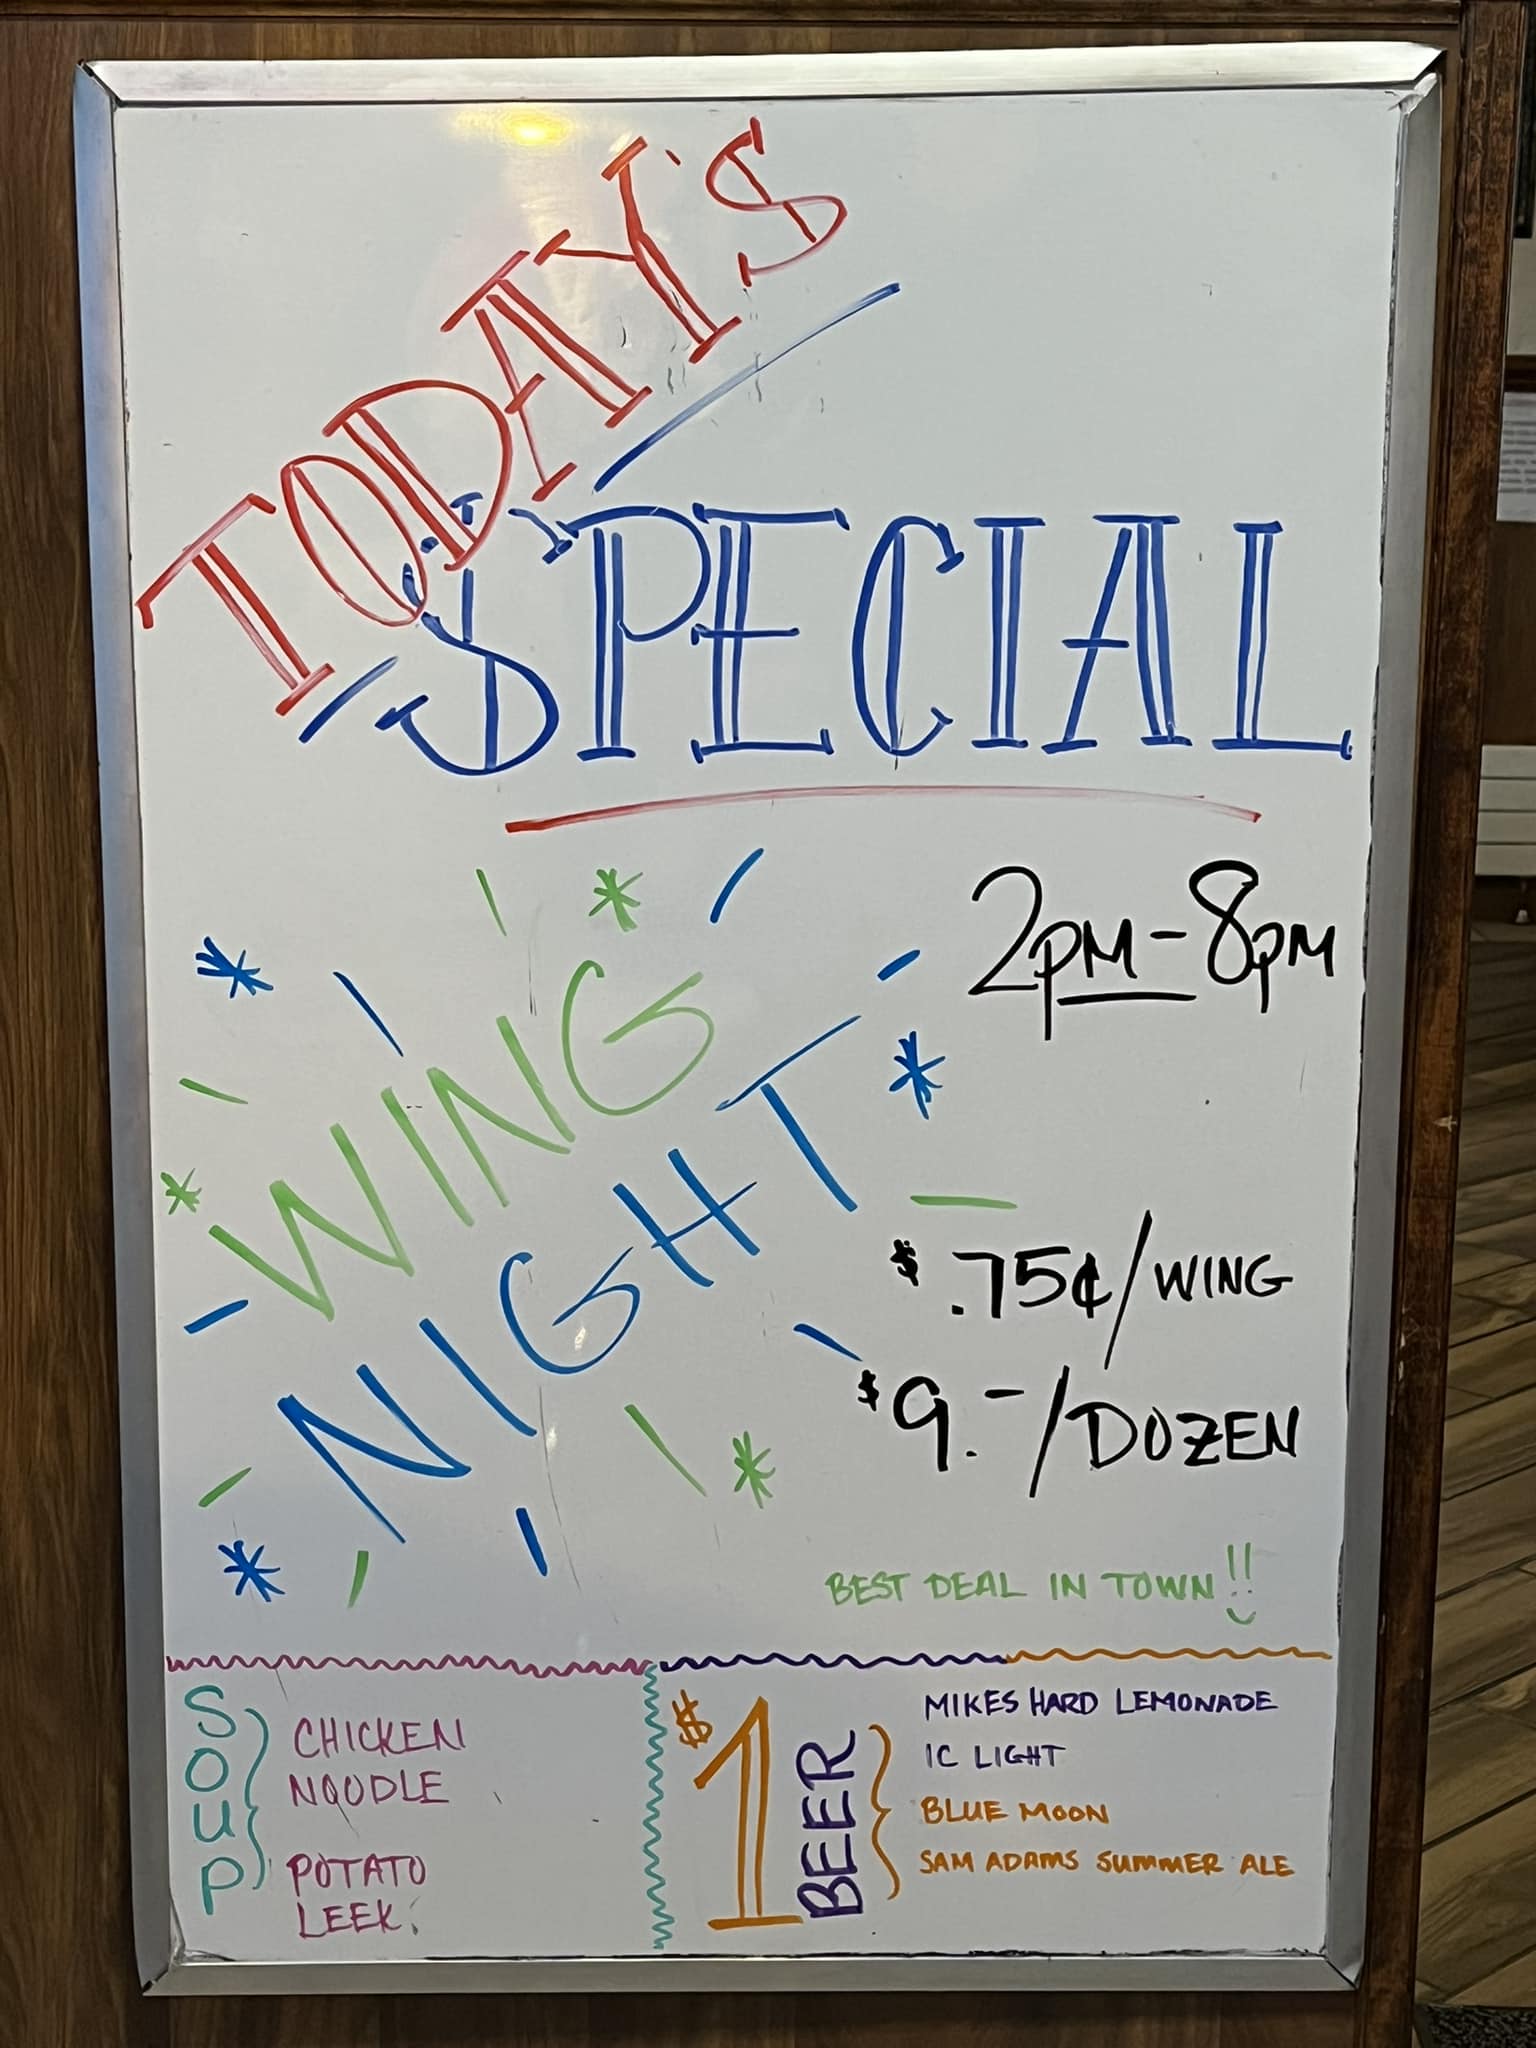 TODAY'S
SPECIAL
2PM-8PM
WING
NIGHT
$.75¢/WING
$9.-/DOZEN
BEST DEAL IN TOWN!!
SOUP
CHICKEN
NOODLE
POTATO
LEEK
$1
BEER
MIKES HARD LEMONADE
IC LIGHT
BLUE MOON
SAM ADAMS SUMMER ALE